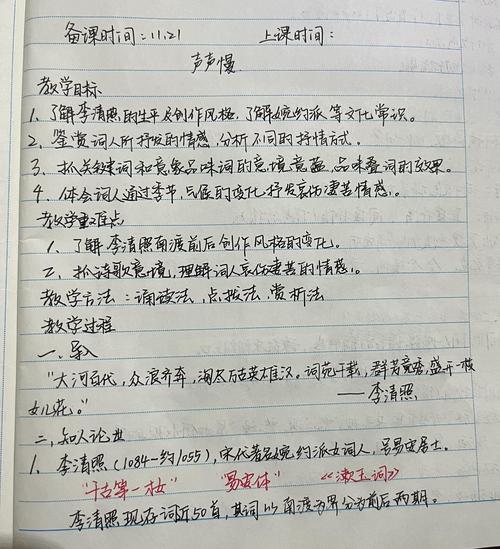 备课时间：11.21 上课时间：
声声慢
教学目标
1、了解李清照的生平及创作风格，了解婉约派等文化常识。
2、鉴赏词人所抒发的情感，分析不同的抒情方式。
3、抓关键词和意象品味词的意境意蕴，品味叠词的效果。
4、体会词人通过季节，气候的变化抒发哀伤凄苦情感。
教学重难点
1、了解李清照南渡前后创作风格的变化。
2、抓诗歌意境，理解词人哀伤凄苦的情感。
教学方法：诵读法，点拨法，赏析法
教学过程
一、导入
"大河百代，众浪齐奔，淘尽万古英雄汉。词苑千载，群芳竞秀，盛开一枝
女儿花。"
——李清照
二、知人论世
1、李清照（1084-约1055），宋代著名婉约派女词人，号易安居士。
"千古第一枝" "易安体" 《漱玉词》
李清照现存词近50首，其词以南渡为界分为前后两期。